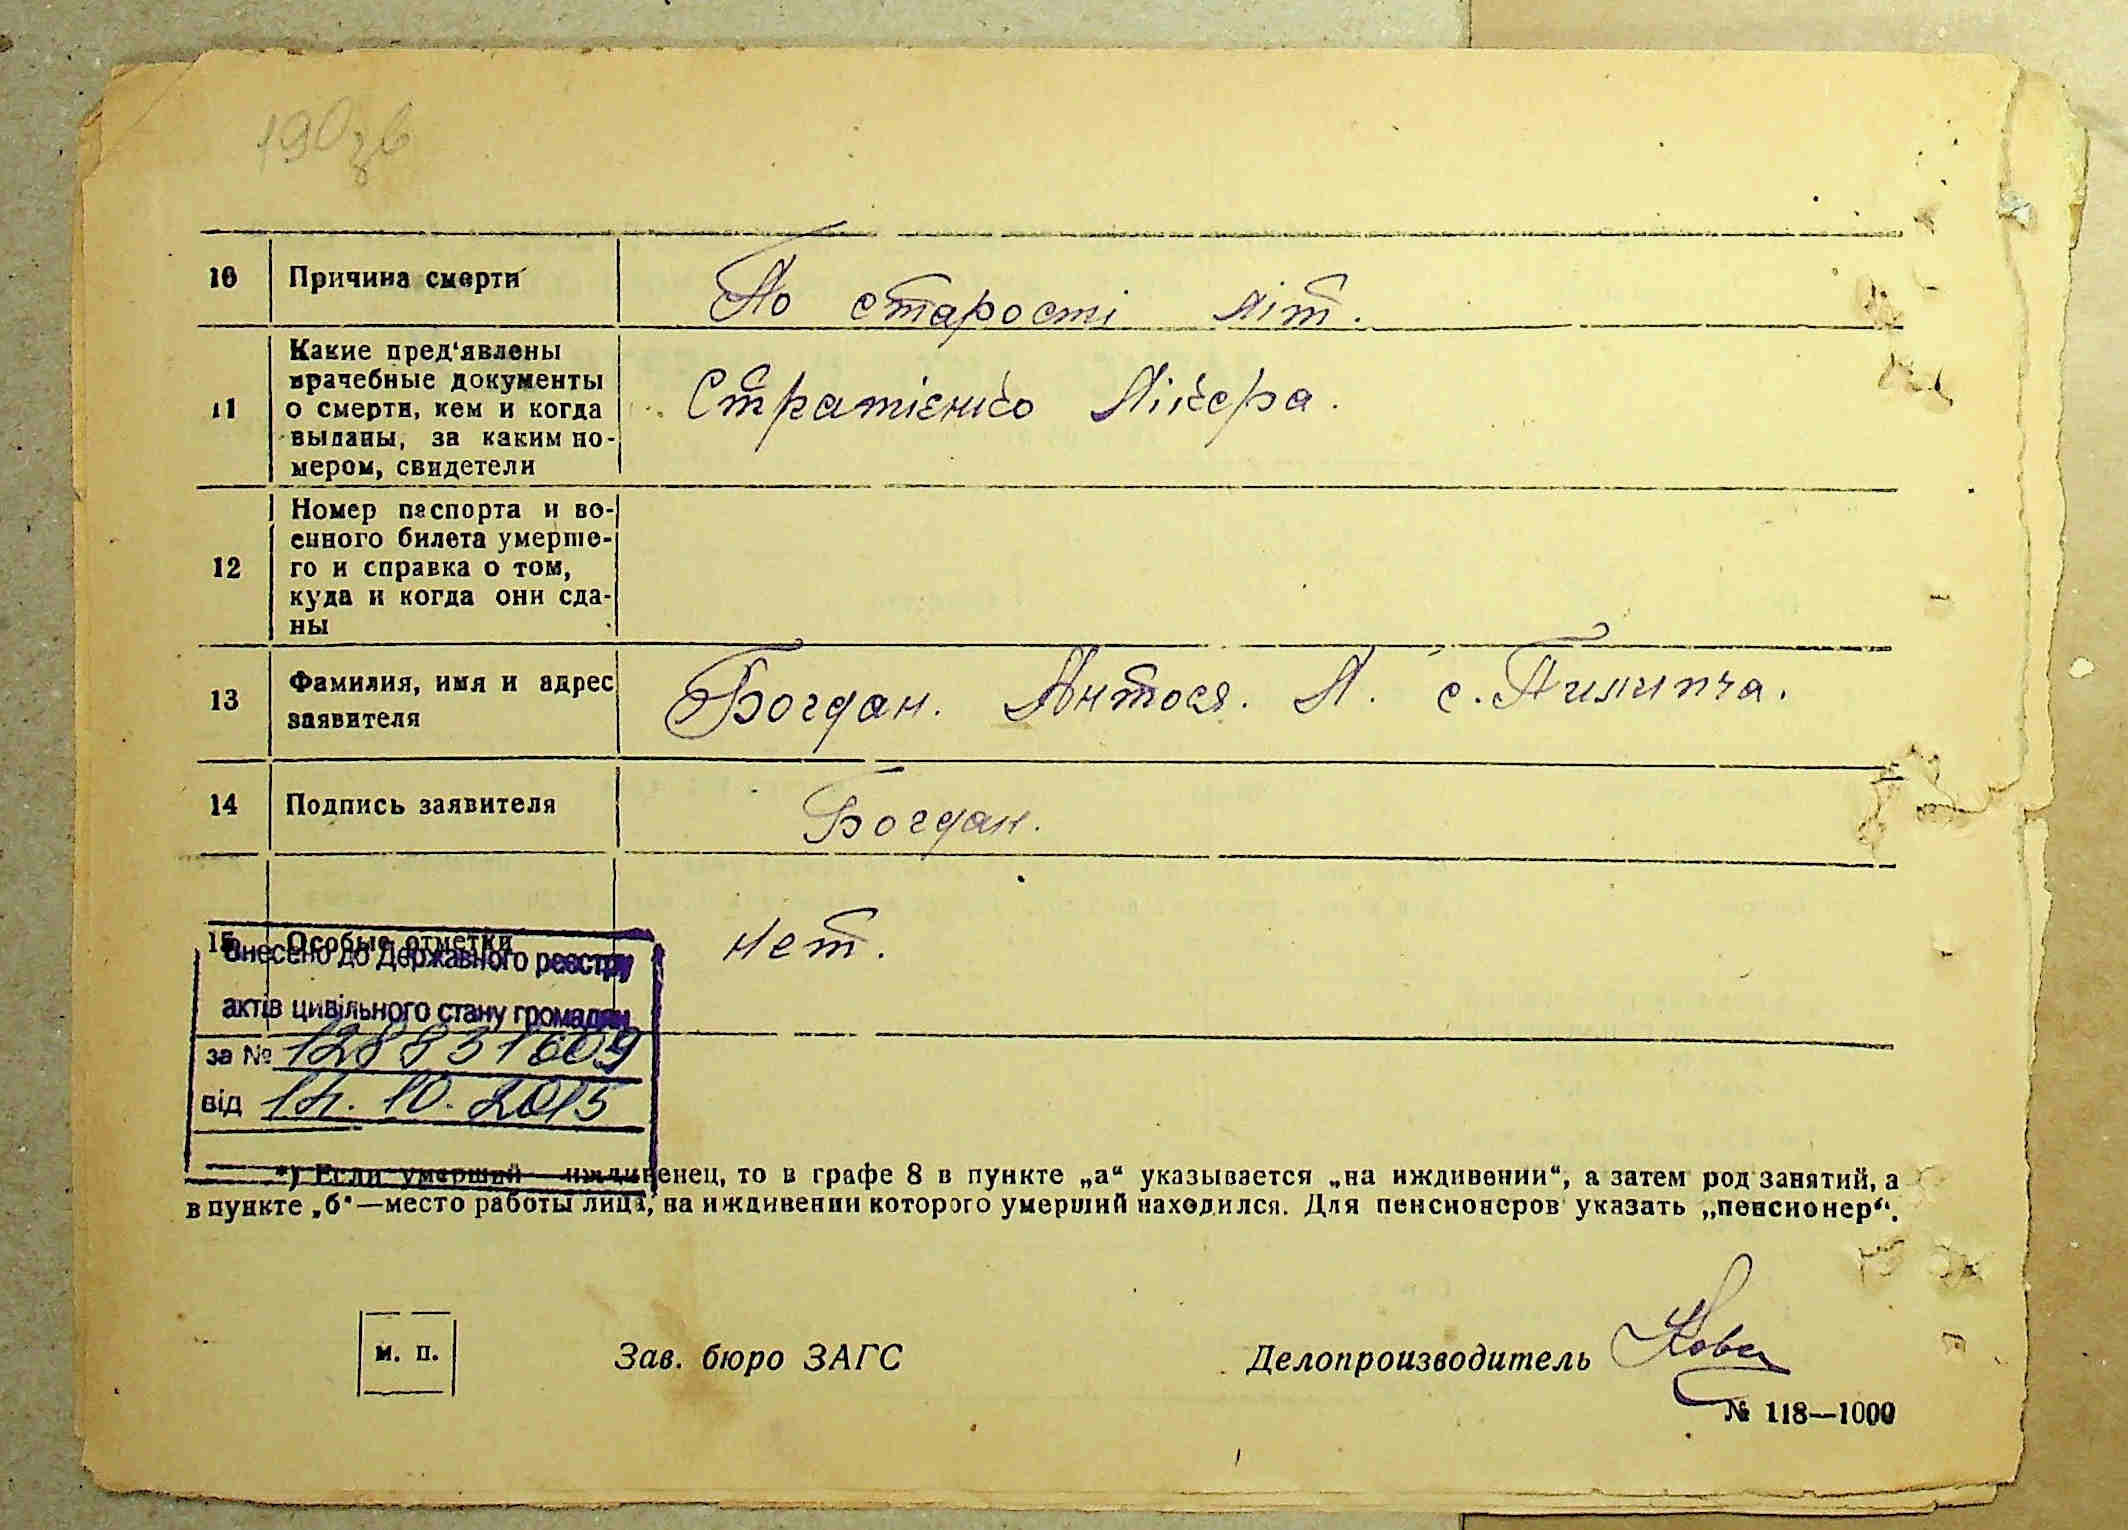 190зв
10 Причина смерти По старости літ.
Какие пред'явлены
врачебные документы
11 о смерти, кем и когда Стратієнко Лікера.
выданы, за каким но-
мером, свидетели
Номер паспорта и во-
енного билета умерше-
12 го и справка о том,
куда и когда они сда-
ны
13 Фамилия, имя и адрес Богдан. Антося. А. с. Пилипча.
заявителя
14 Подпись заявителя Богдан.
15 Особые отметки нет.
Внесено до Державного реєстру
актів цивільного стану громадян
за № 128831609
від 14.10.2015
*) Если умерший иждивенец, то в графе 8 в пункте „а“ указывается „на иждивении“, а затем род занятий, а
в пункте „б“—место работы лица, на иждивении которого умерший находился. Для пенсионеров указать „пенсионер“.
м. п. Зав. бюро ЗАГС Делопроизводитель
№ 118—1000